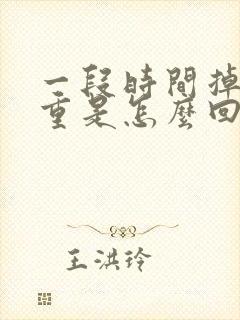 一段時間掉
重是怎麼回
王洪玲